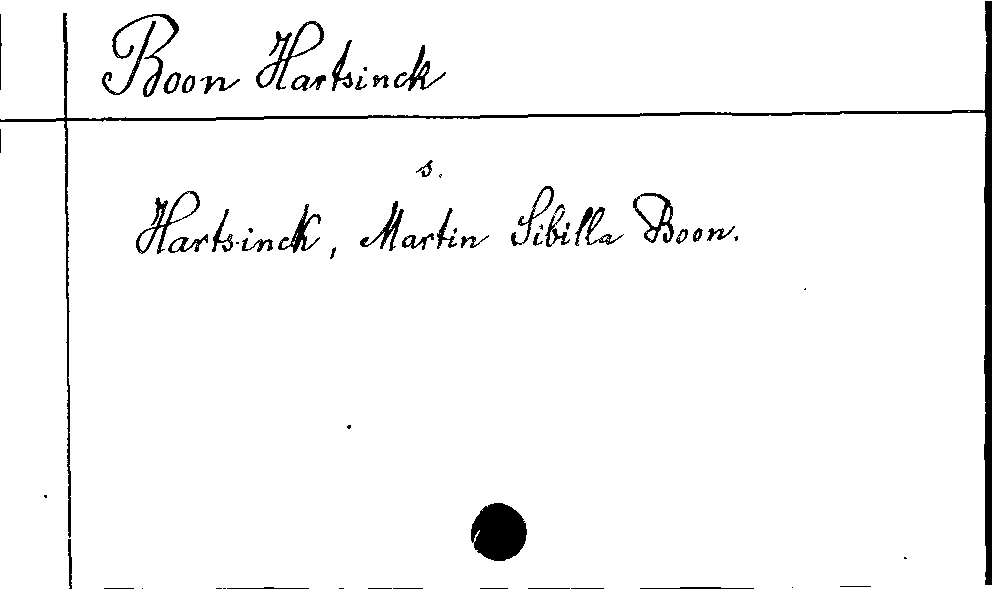 Boon Hartsinck
s.
Hartsinck, Martin Sibilla Boon.